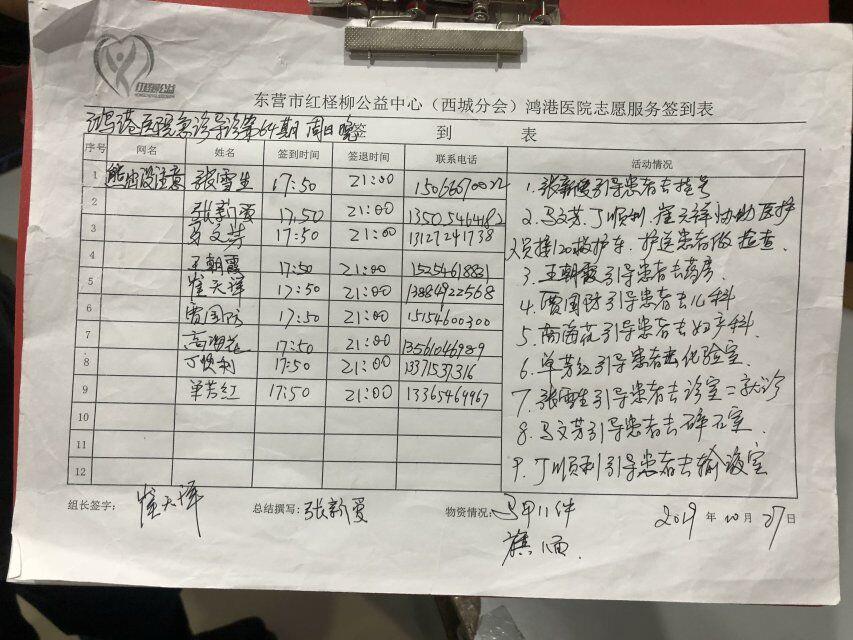 红柽柳公益
东营市红柽柳公益中心（西城分会）鸿港医院志愿服务签到表
鸿港医院急诊导诊第64期 周日晚 签 到 表
序号 网名 姓名 签到时间 签退时间 联系电话 活动情况
1 熊出没注意 张雪生 17:50 21:00
2 张新爱 17:50 21:00 13505464182
3 马文芳 17:50 21:00 13127241738
4 王朝霞 17:50 21:00
5 崔天祥 17:50 21:00 13884922568
6 贾国防 17:50 21:00 15154600300
7 高海花 17:50 21:00 13561046989
8 丁顺利 17:50 21:00 13371537316
9 单芳红 17:50 21:00 13365464967
10
11
12
1. 张新爱引导患者去挂号
2. 马文芳、丁顺利、崔天祥协助医护
人员接120救护车、护送患者做检查.
3. 王朝霞引导患者去药房
4. 贾国防引导患者去儿科
5. 高海花引导患者去妇产科
6. 单芳红引导患者去化验室
7. 张雪生引导患者去诊室二就诊
8. 马文芳引导患者去碎石室.
9. 丁顺利引导患者去输液室
组长签字： 崔天祥 总结撰写: 张新爱 物资情况: 马甲11件 2019 年 10 月 27 日
旗1面.